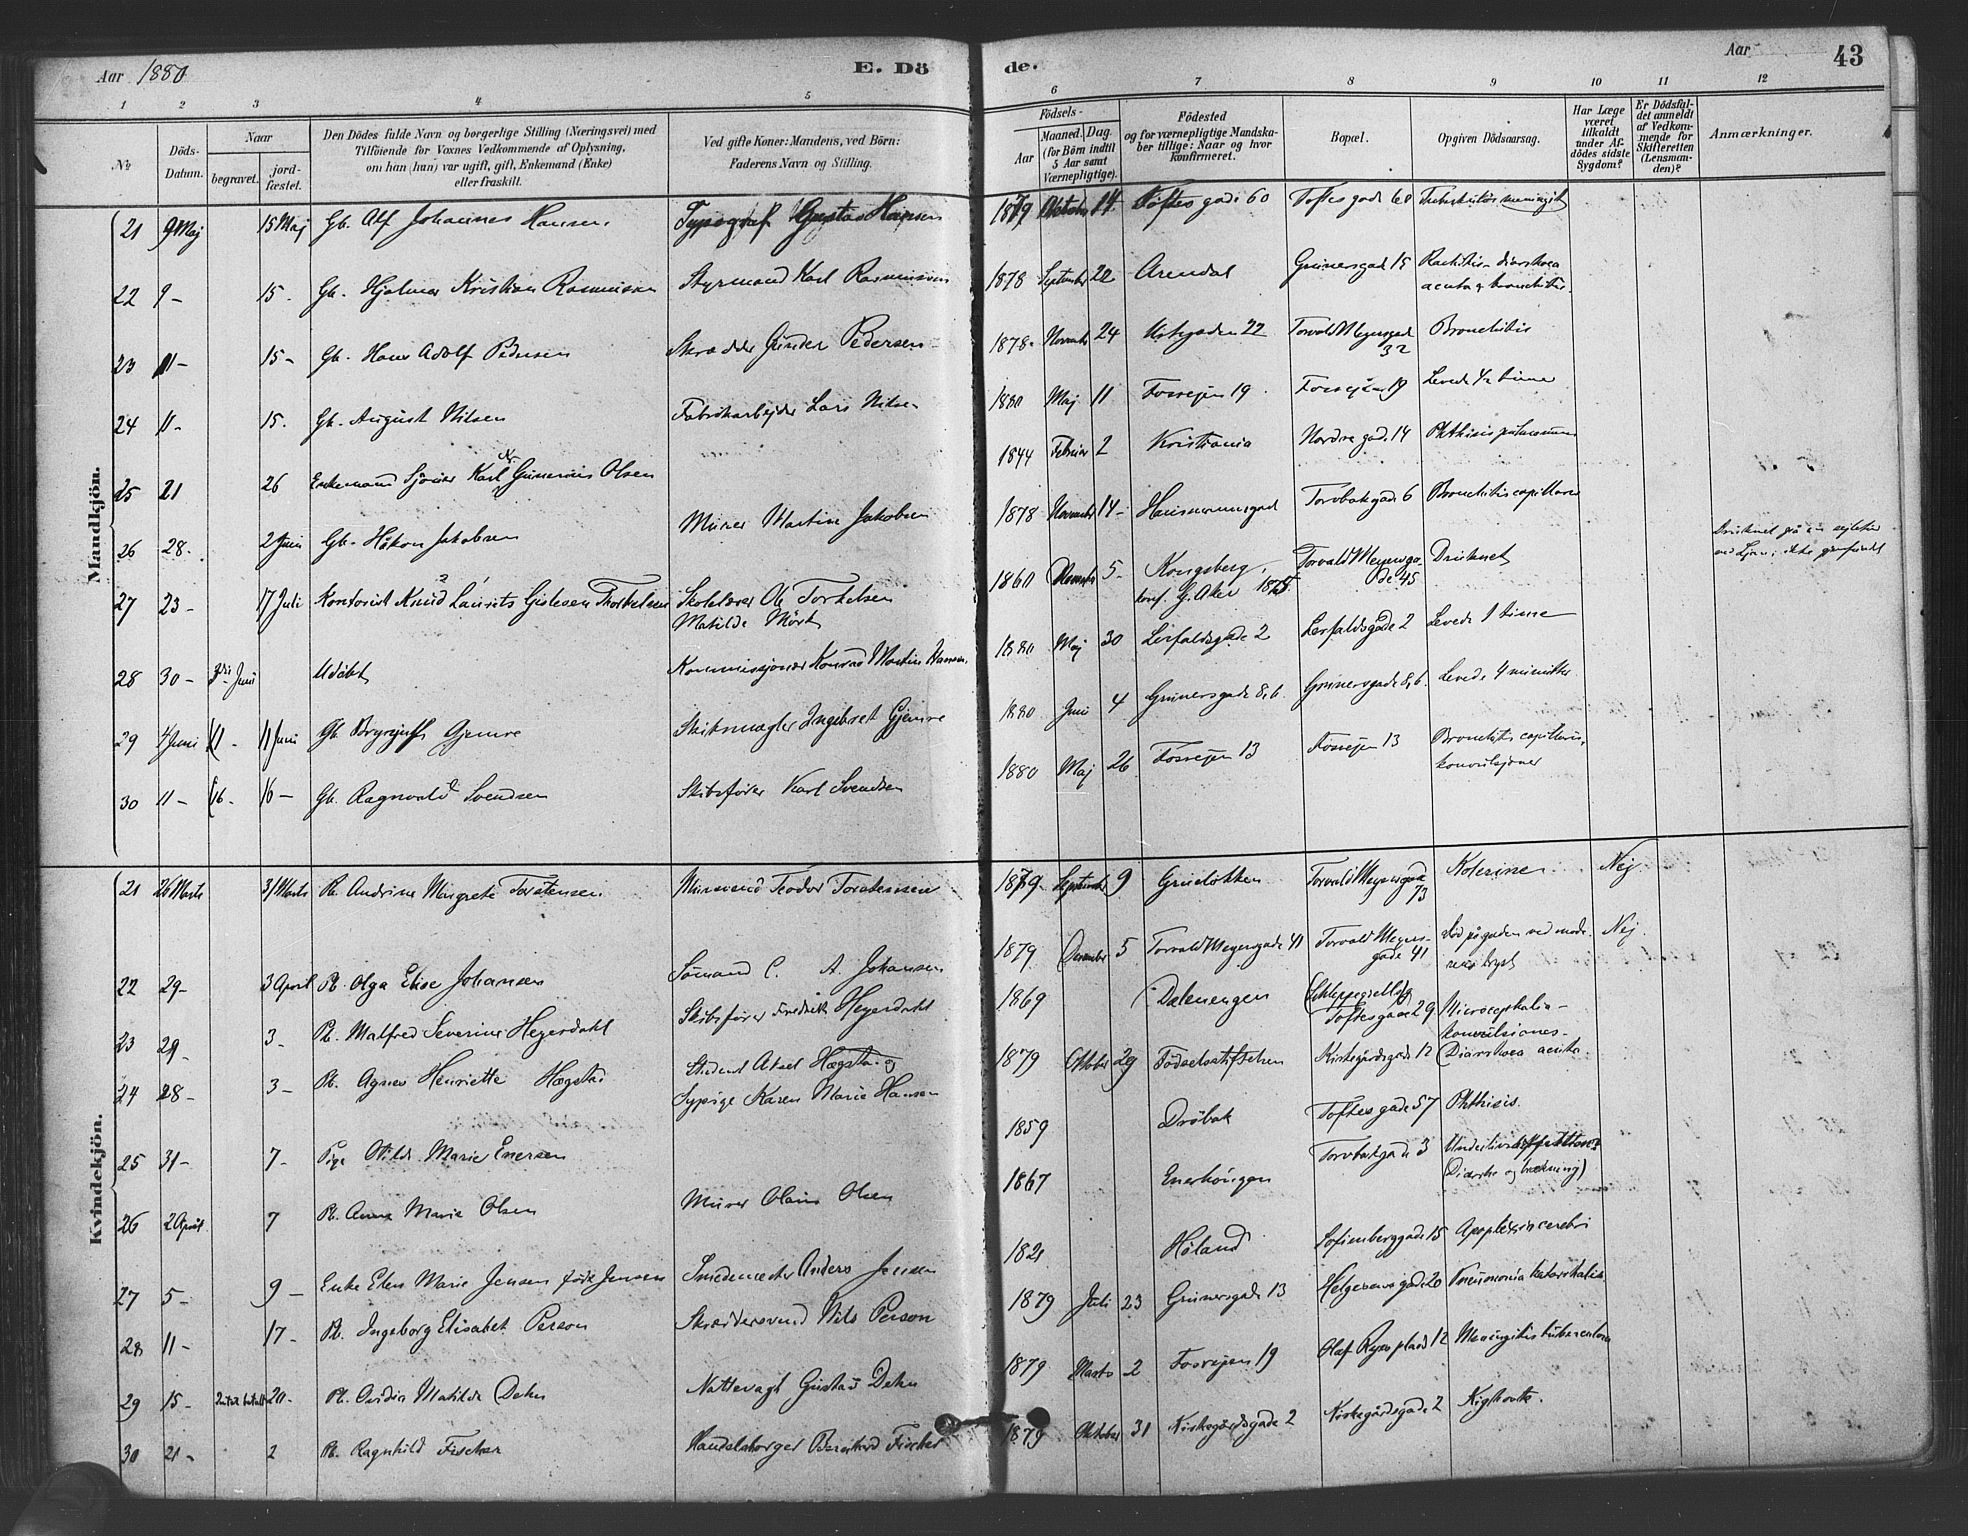 Aar 1880
E. Dö
de.
Aar
43
1 2 3 4 5 6 7 8 9 10 11 12
No
Döds-Datum.
Naar
begravet.
jord-fæstet.
Den Dödes fulde Navn og borgerlige Stilling (Næringsvei) med
Tilföiende for Voxnes Vedkommende af Oplysning,
om han (hun) var ugift, gift, Enkemand (Enke)
eller fraskilt.
Ved gifte Koner: Mandens, ved Börn:
Faderens Navn og Stilling.
Födsels-
Aar
Maaned. Dag.
(for Börn indtil
5 Aar samt
Værnepligtige).
Födested
og for værnepligtige Mandska-
ber tillige: Naar og hvor
konfirmeret.
Bopæl.
Opgiven Dödsaarsag.
Har Læge
været
tilkaldt
under Af-
dödes sidste
Sygdom?
Er Dödsfal-
det anmeldt
af Vedkom-
mende for
Skifteretten
(Lensman-
den)?
Anmærkninger.
Mandkjön.
21 9 Maj 15 Maj Gb. Alf Johannes Hansen Typograf Gustav Hansen 1879 Oktober 14 Toftes gade 60 Toftes gade 60
22 9 - 15. Gb. Hjalmar Kristian Rasmussen Styrmand Karl Rasmussen 1878 September 22 Arendal Grünersgade 15 Rachitis - diarrhoea
acuta & bronchitis.
23 11 - 15 - Gb. Hans Adolf Pedersen Skrædder Gunder Pedersen 1878 November 24 22 Torvald Meyersgade
32 Bronchitis
24 11 - 15. Gb. August Nilsen Fabrikarbejder Lars Nilsen 1880 Maj 11 Fossvejen 19 Fossvejen 19 Levede 1/2 time
25 21 26 Enkemand Karl Gunerius Olsen 1844 Februar 2 Kristiania Nordre gade 14 Phthisis pulmonum
26 28. 2 Juni Gb. Håkon Jakobsen Murer Martin Jakobsen 1878 November 14 - Hausmannsgade Torvbakgade 6 Bronchitis capillaris
27 23 - 17 Juli Kontorist Knud Laurits Gislesen Thorkelsen Skolelærer Ole Torkelsen 1860 5 - Kongsberg,
konf. G. Aker 1875. Torvald Meyersga-
de 45 Druknet
Druknet på en sejltur
ved Ljan; ikke gjenfundet
28 30 - 3die Juni Udöbt Matilde Mört
Kommissjonær Konrad Martin Hansen. 1880 Maj 30 Lerfaldsgade 2 Lerfaldsgade 2 Levede 1 time
29 4 Juni 11 - 11 Juni Gb. Gjemre Skibsmægler Ingebret Gjemre 1880 Juni 4 Grünersgade 8, b. Grünersgade 8, b. Levede 4 minutter
30 11 - 16 - 16 - Gb. Ragnvald Svendsen Skibsfører Karl Svendsen 1880 Maj 26 Fossvejen 13 Fossvejen 13 Bronchitis capillaris,
konvulsjoner
Kvindekjön.
21 26 Marts 31 Marts Pb. Andrine Margrete Torstensen Murersvend Teodor Torstensen 1879 September 9 Grünløkken Torvald Meyersgade
73 Kolerine Nej
22 29 - 3 April Pb. Olga Elise Johansen Sömand C. A. Johansen 1879 December 5 Torvald Meyersgade 41 Torvald Meyers-
gade 41 Död på gaden ved mode-
rens bryst Nej.
23 29 - 3 - Pb. Malfred Severine Heyerdahl Skibsfører Fredrik Heyerdahl 1869 Dælenengen Toftesgade 29 Microcephalia -
konvulsiones -
24 28 - 3 - Pb. Agnes Henriette Høgstad Student Aksel Høgstad og
Sypige Karen Marie Hansen 1879 Oktober 29 Fødselsstiftelsen Kirkegårdsgade 12 Diarrhoea acuta
25 31 - 7 - Pige Otilde Marie Enersen 1859 Dröbak Toftes gade 57 Phthisis.
26 2 April 7 Pb. Anna Marie Olsen Murer Olaus Olsen 1867 Enerhöugen Torvbakgade 3
(Diarrhe og brækning)
27 5 - 9 - Enke Elen Marie Jensen født Jensen Smedemester Anders Jensen 1821 Höland Sofienberggade 15 Apoplexia cerebri
28 11 - 17 - Pb. Ingeborg Elisabet Person Skræddersvend Nils Person 1879 Juli 23 Grünersgade 13 Helgesensgade 20 Pneumonia katarrhalis
29 15 - 20 - Pb. Matilde Dehn Nattevagt Gustav Dehn 1879 Marts 2 Fossvejen 19 Olaf Ryes plads 12 Meningitis tuberculosa
30 21 - 2 Pb. Ragnhild Fischer Handelsborger Bernhard Fischer 1879 Oktober 31 Kirkegårdsgade 2 Kirkegårdsgade 2 Kighoste.